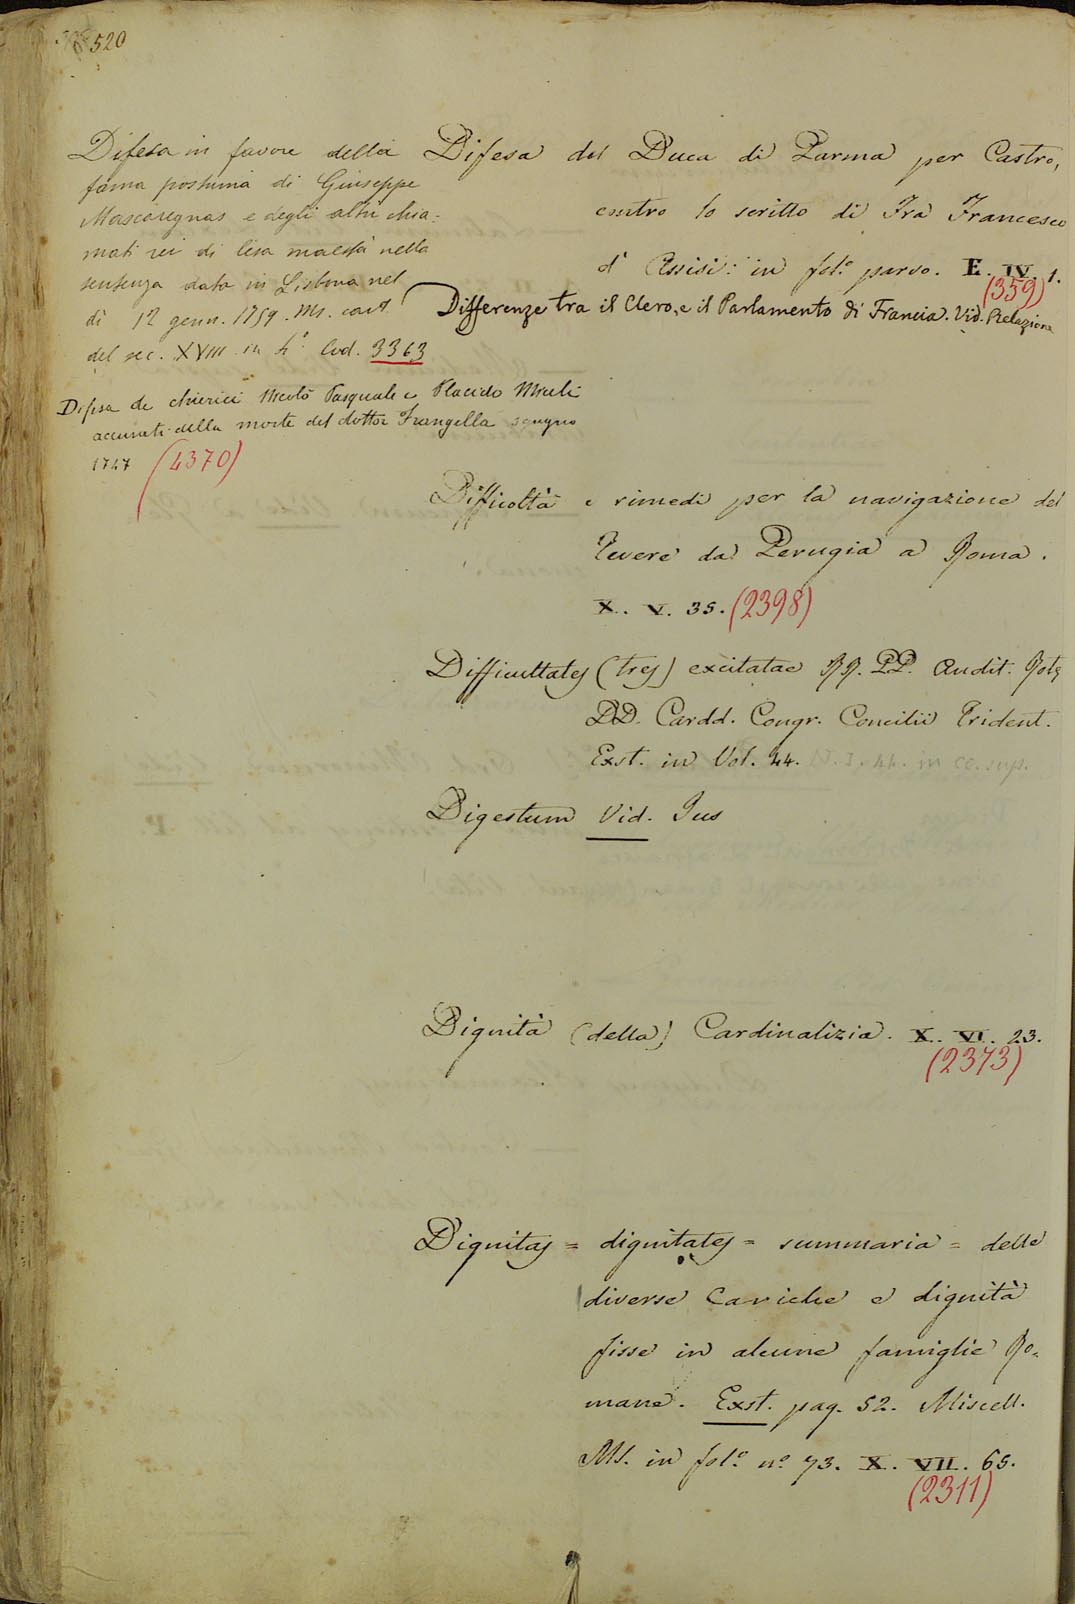 520
Difesa in favore della
fama postuma di Giuseppe
Mascaregnas e degli altri chia=
mati rei di lesa maestà nella
sentenza data in Lisbona nel
dì 12 genn. 1759. Ms. cart.
del sec. XVIII in 4.º Cod. 3363
Difesa de chierici Nicolò Pasquale e Placido Miceli
accusati della morte del dottor Frangella
1747 (4370)
Difesa del Duca di Parma per Castro,
contro lo scritto di Fra Francesco
d'Assisi: in fol.º parvo. E. IV. 1.
(359)
Differenze tra il Clero, e il Parlamento di Francia. Vid. Relazione
Difficoltà e rimedi per la navigazione del
Tevere da Perugia a Roma.
X. V. 35. (2398)
Difficultates (tres) excitatae RR. PP. Audit. Rotę
DD. Cardd. Congr. Concilii Trident.
Exst. in Vol. 44. V. I. 44. in cc. sup.
Digestum Vid. Jus
Dignità (della) Cardinalizia. X. VI. 23.
(2373)
Dignitas = dignitates = summaria = delle
diverse Cariche e dignità
fisse in alcune famiglie Ro=
mane. Exst. pag. 52. Miscell.
Ms. in fol.º n.º 73. X. VII. 65.
(2311)